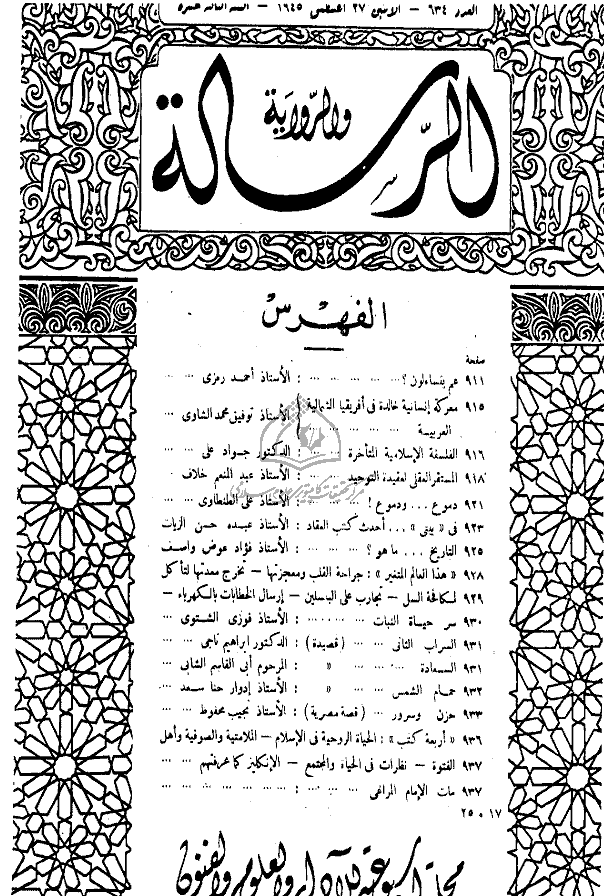 العدد ٦٣٤ — الاثنين ٢٧ أغسطس ١٩٤٥ — السنة الثالثة عشرة
الرسالة
والرواية
الفهرس
صفحة
٩١١ عم يتساءلون ؟ ... ... ... ... : الأستاذ أحمد رمزى ...
٩١٥ معركة إنسانية خالدة فى أفريقيا الشمالية العربية ... : الأستاذ توفيق محمد الشاوى ...
٩١٦ الفلسفة الإسلامية المتأخرة ... ... : الدكتور جواد على ...
٩١٨ المستقر العقلى لعقيدة التوحيد ... : الأستاذ عبد المنعم خلاف
٩٢١ دموع ... ودموع ! ... ... : الأستاذ على الطنطاوى ...
٩٢٣ فى « بيتى » ... أحدث كتب العقاد : الأستاذ عبده حسن الزيات
٩٢٥ التاريخ ... ما هو ؟ ... ... ... : الأستاذ فؤاد عوض واصف
٩٢٨ « هذا العالم المتغير » : جراحة القلب ومعجزتها — تخرج معدتها لتأكل
٩٢٩ لمكافحة السل — تجارب على الباسلين — إرسال الخطابات بالكهرباء —
٩٣٠ سر حياة النبات ... ... ... : الأستاذ فوزى الشتوى ...
٩٣١ السراب الثانى ... ... ( قصيدة ) : الدكتور ابراهيم ناجى ...
٩٣١ السعادة ... ... ... » : المرحوم أبى القاسم الشابى ...
٩٣٢ حمام الشمس ... ... » : الأستاذ إدوار حنا سعد ...
٩٣٣ حزن وسرور ... ( قصة مصرية ) : الأستاذ نجيب محفوظ ...
٩٣٦ « أربعة كتب » : الحياة الروحية فى الإسلام — الملامتية والصوفية وأهل
٩٣٧ الفتوة — نظرات فى الحياة والمجتمع — الإنكليز كما عرفتهم ...
٩٣٧ مات الإمام المراغى ... ... ... : ... ... ... ...
١٧ ٥ ٢٥
مجلة أسبوعية للآداب والعلوم والفنون